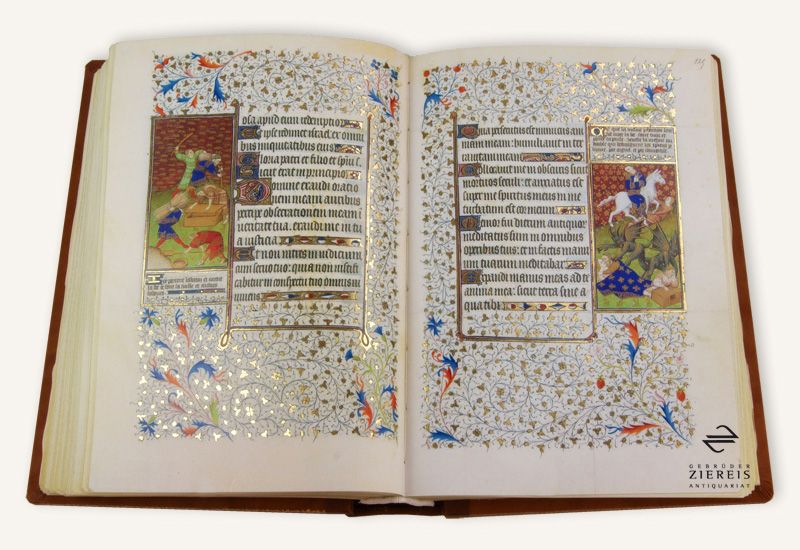 osa apud eum redemptio
Et ipse redimet israel ex omni
bus iniquitatibus eius
Gloria patri et filio et
Sicut erat in principio
Domine exaudi oratio
nem meam auribus
percipe obsecrationem meam i
veritate tua exaudi me in tu
a iusticia
Et non intres in iudicium
cum servo tuo: quia non iustifi
cabitur in conspectu tuo omnis
125
Quia persecutus est inimicus ani
mam meam: humiliavit in ter
ra vitam meam
Collocavit me in obscuris sicut
mortuos seculi: et anxiatus est
super me spiritus meus in me
turbatum est cor meum
Memor fui dierum antiquor
meditatus sum in omnibus
operibus tuis: et in factis manu
um tuarum meditabar
Expandi manus meas ad te
anima mea: sicut terra sine a
qua tibi
GEBRÜDER
ZIEREIS
ANTIQUARIAT